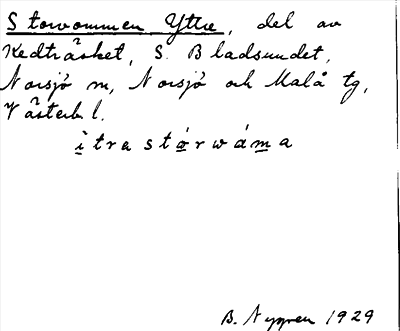 Storvommen Yttre, del av
Kedträsket, S. Bladsundet,
Norsjö m, Norsjö och Malå tg,
Västerb l.
ìtrastórwáma
B. Nygren 1929